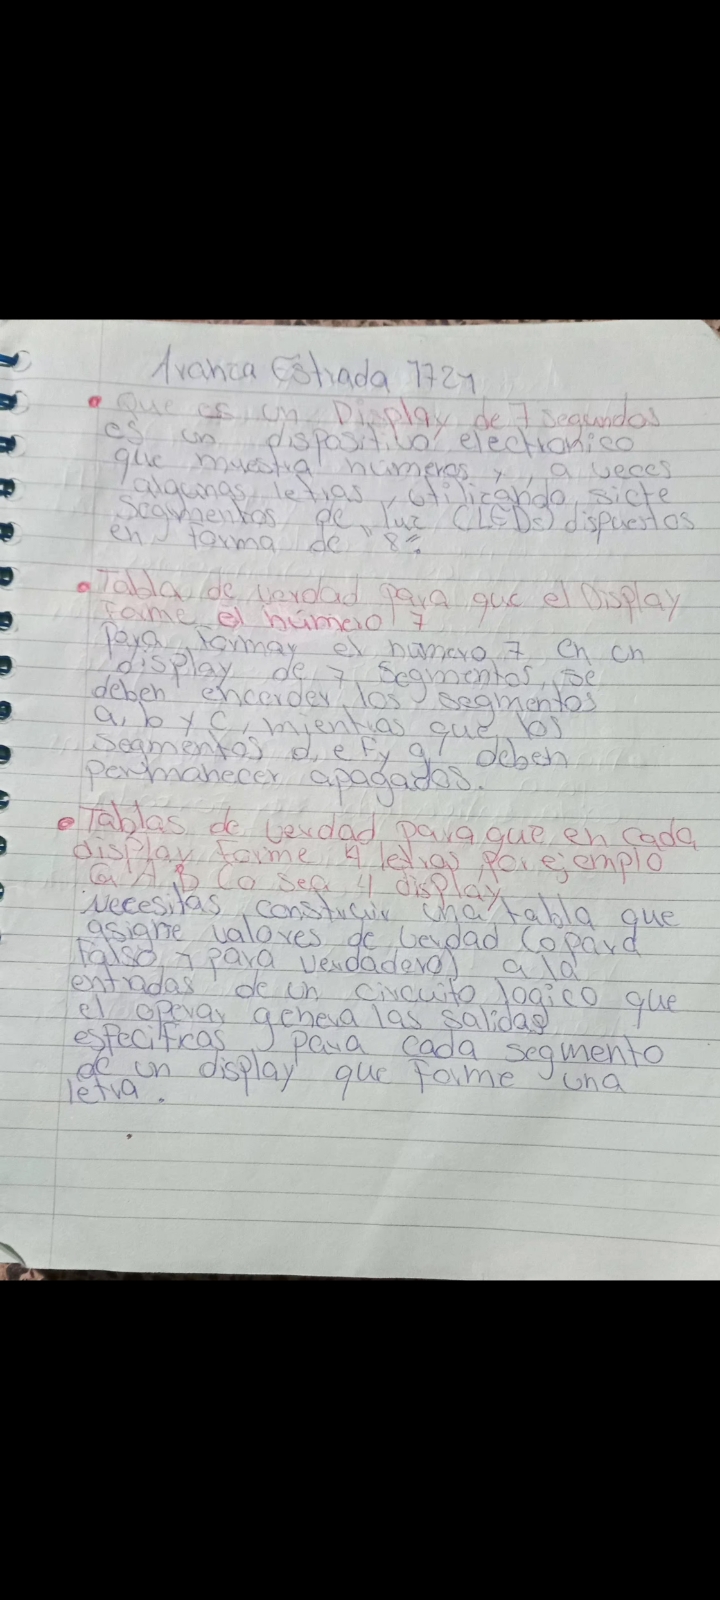 Aranza Estrada 1724
• Que es un Display de 7 segundos
es un dispositivo electronico
que muestra números y, a veces
algunas letras, utilizando siete
segmentos de luz (LEDs) dispuestos
en forma de "8".
• Tabla de verdad para que el Display
forme el número 7
Para formar el numero 7 en un
display de 7 segmentos, se
deben encerder los segmentos
a, b y c, mientras que los
segmentos d, e f y g, deben
permanecer apagados.
• Tablas de verdad para que en cada
display forme 4 letras por ejemplo
G A B C o sea 4 display
Necesitas construir una tabla que
asigne valores de verdad (o para
falso y para verdadero) a la
entradas de un circuito logico que
el operar genera las salidas
especificas para cada segmento
de un display que forme una
letra.